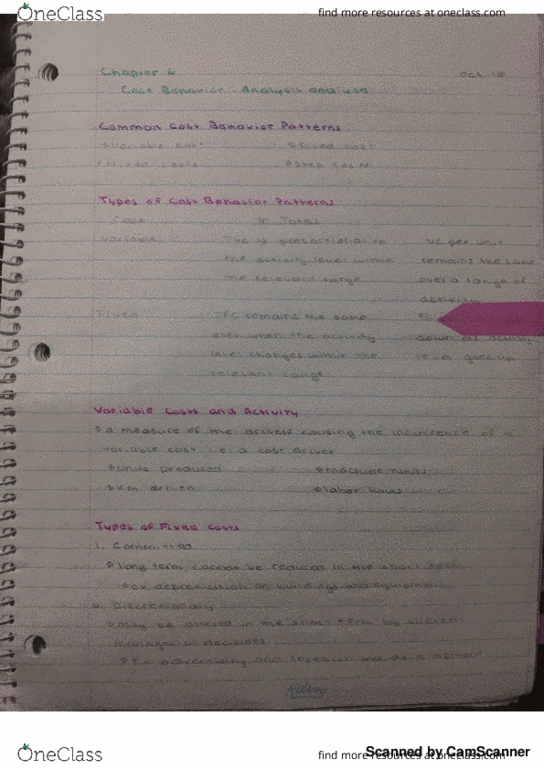 OneClass find more resources at oneclass.com
Chapter 6 Oct. 16
Cost Behavior: Analysis and Uses
Common Cost Behavior Patterns
variable cost fixed cost
mixed costs step costs
Types of Cost Behavior Patterns
Cost In Total
Variable TVC is proportional to VC per unit
the activity level within remains the same
the relevant range over a range of
activity
Fixed TFC remains the same
even when the activity down as activity
level changes within the level goes up
relevant range
Variable Costs and Activity
a measure of the activity causing the incurrence of a
variable cost i.e. a cost driver
units produced machine hours
km driven labor hours
Types of Fixed Costs
1. Committed
long term, cannot be reduced in the short term
ex depreciation on buildings and equipment
2. Discretionary
may be altered in the short-term by current
managerial decisions
ex advertising and research and development
OneClass find more resources at oneclass.com
Scanned by CamScanner